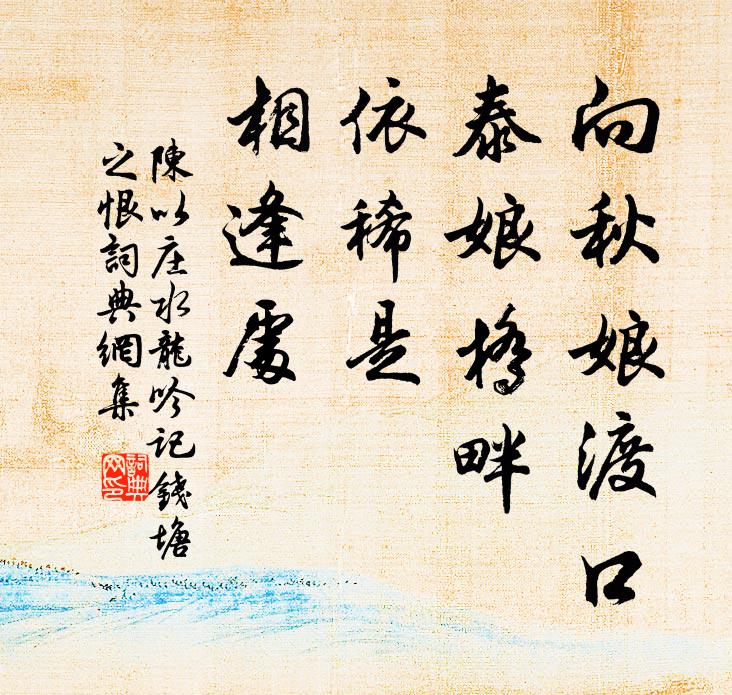 向秋娘渡口
泰娘橋畔
依稀是
相逢處
陳以庄水龍吟记錢塘
之恨詞典網集
詞典網印